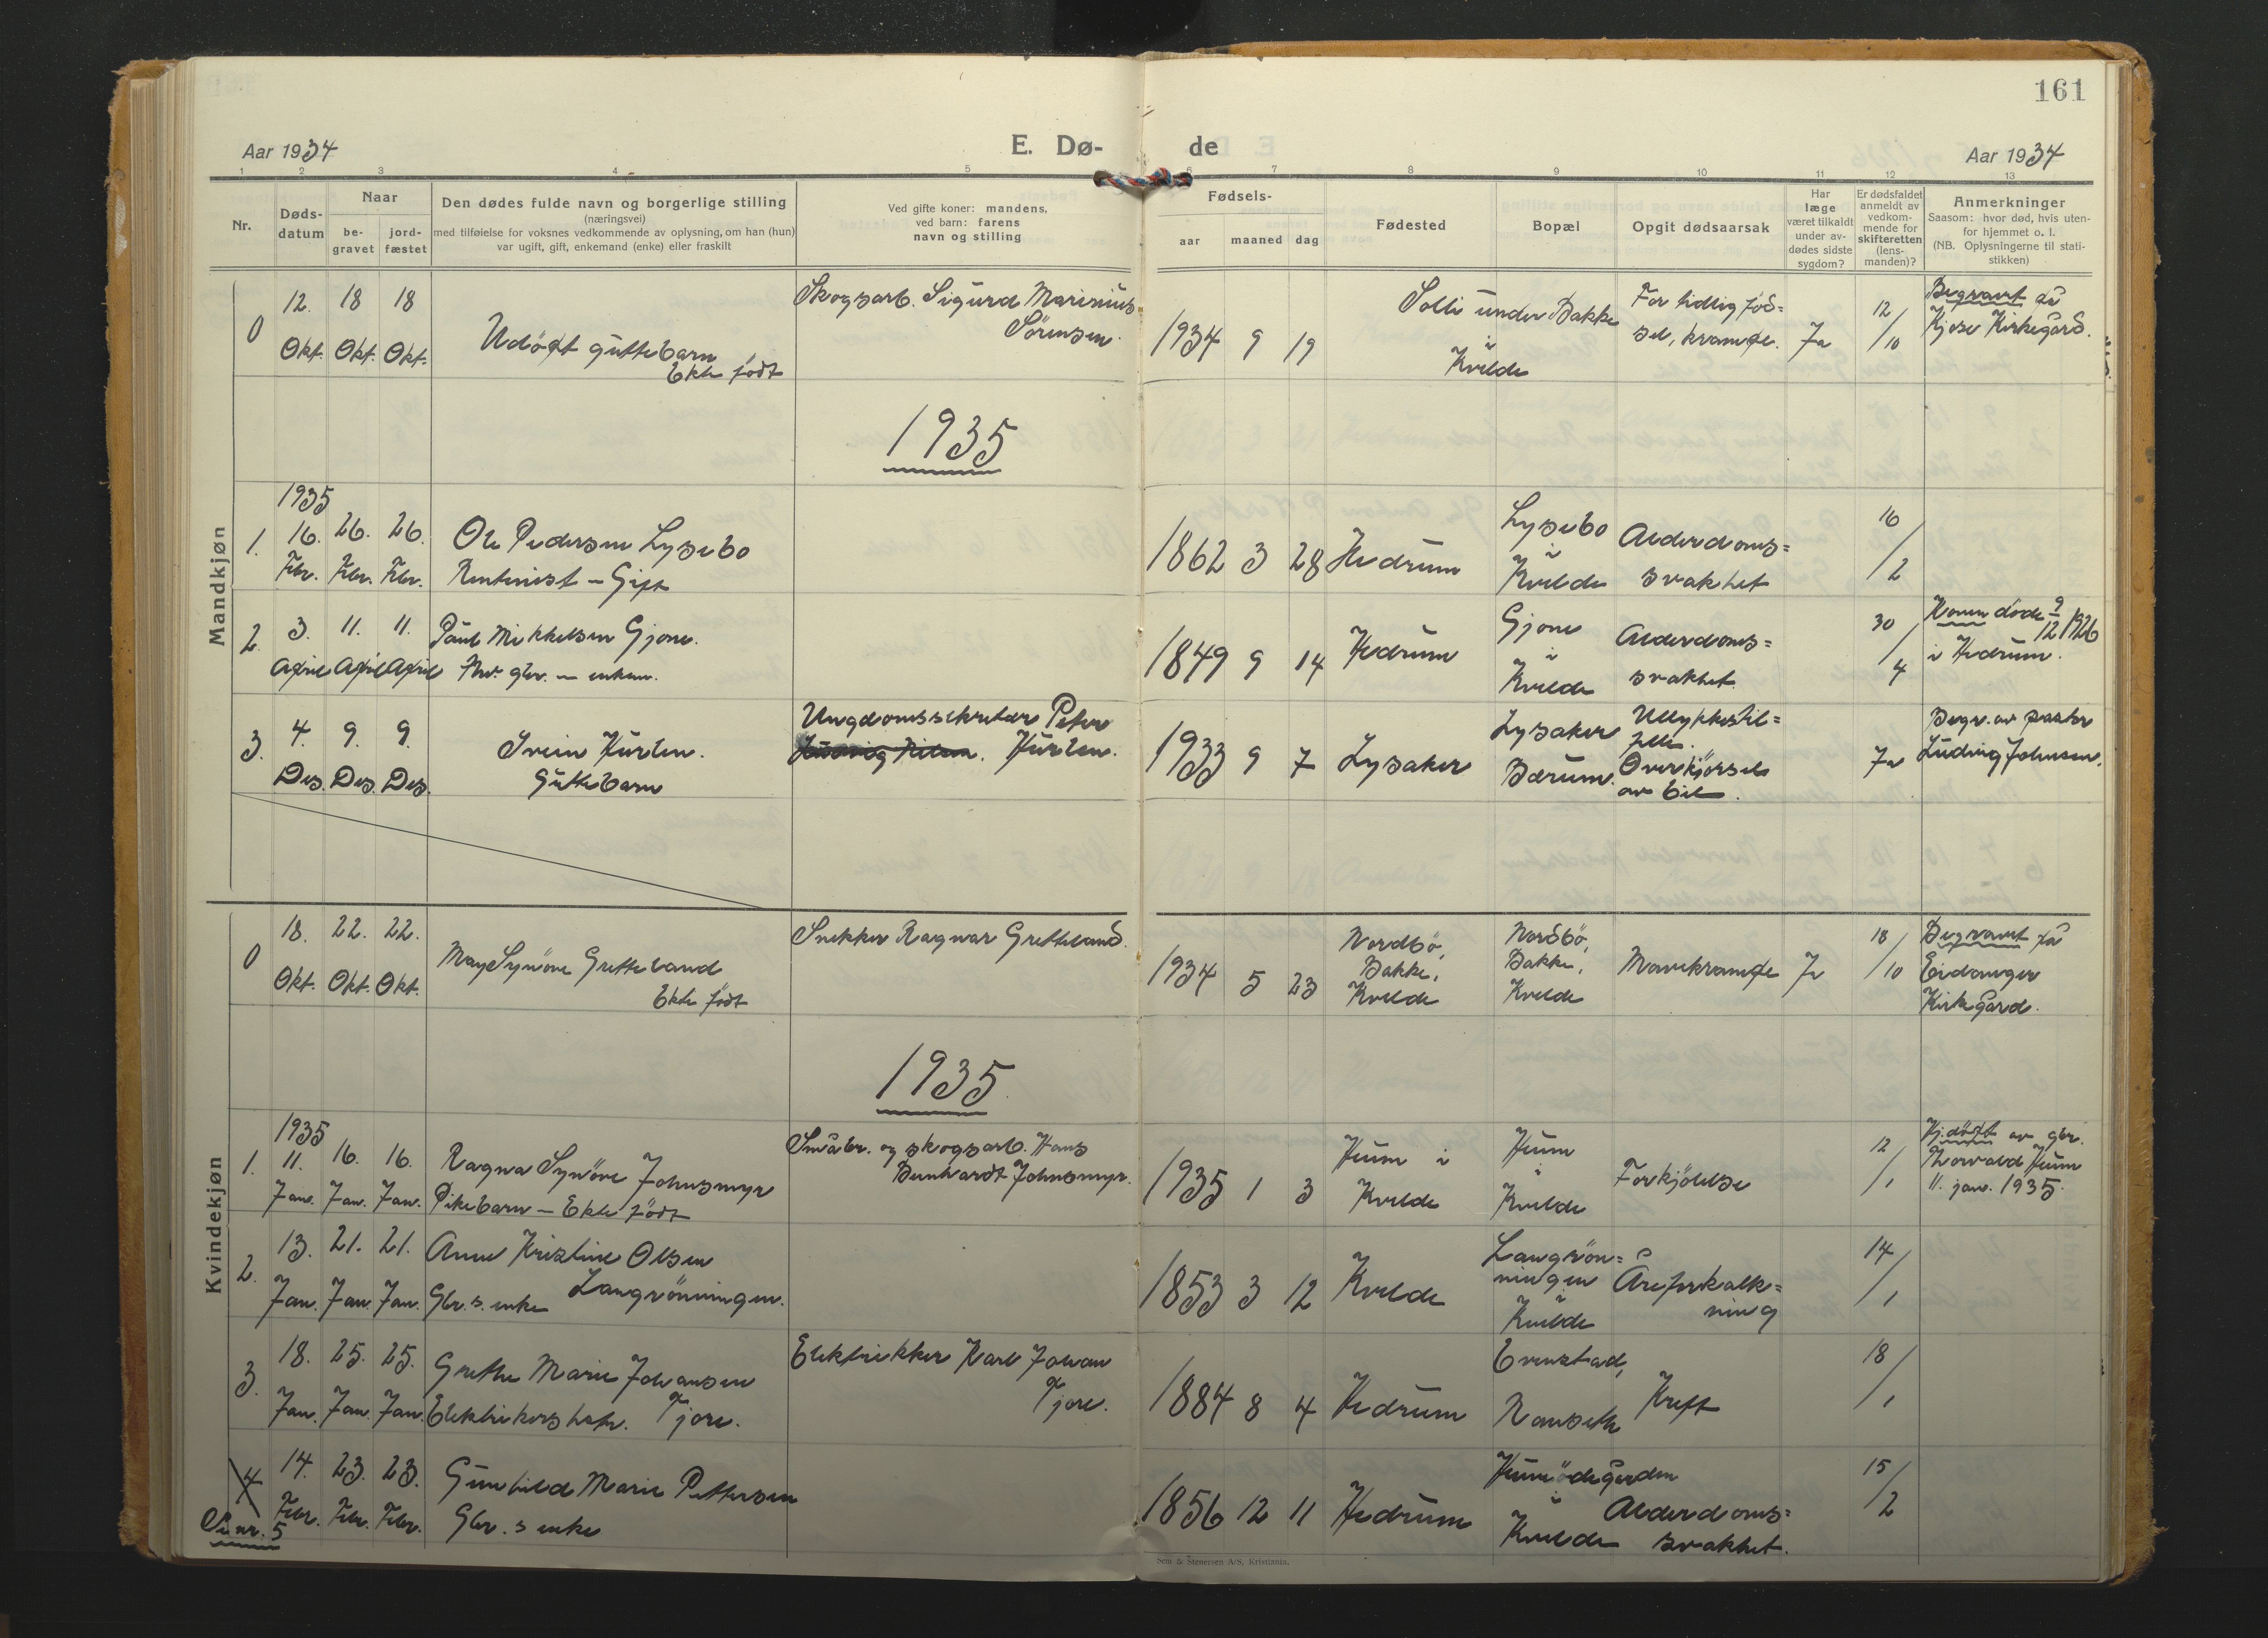 161
Aar 1934
E. Dø-
de
Aar 1934
1 2 3 4 5 6 7 8 9 10 11 12 13
Nr.
Døds-
datum
Naar
be-
gravet
jord-
fæstet
Den dødes fulde navn og borgerlige stilling
(næringsvei)
med tilføielse for voksnes vedkommende av oplysning, om han (hun)
var ugift, gift, enkemand (enke) eller fraskilt
Ved gifte koner: mandens,
ved barn: farens
navn og stilling
Fødsels-
aar maaned dag
Fødested
Bopæl
Opgit dødsaarsak
Har
læge
været tilkaldt
under av-
dødes sidste
sygdom?
Er dødsfaldet
anmeldt av
vedkom-
mende for
skifteretten
(lens-
manden)?
Anmerkninger
Saasom: hvor død, hvis uten-
for hjemmet o. l.
(NB. Oplysningerne til stati-
stikken)
Mandkjøn
0
12. 18 18
Okt. Okt. Okt.
Udöpt guttebarn
Ekte født
Skogsarb. Sigurd Marinius
Sörensen.
1934 9 19
Solli under Bakke
i
Kvelde
For tidlig fød=
sel, krampe.
Ja
12/10
Begravet på
Kjose Kirkegård.
1935
1.
1935
16. 26. 26.
Febr. Febr. Febr.
Ole Pedersen Lysebo
Rentenist - Gift
1862 3 28
Hedrum
Lysebo
i
Kvelde
Alderdoms=
svakhet
16/2
2.
3. 11. 11.
April April April
Paul Mikkelsen Gjone.
Fhv. gbr. - enkem.
1849 9 14
Hedrum
Gjone
i
Kvelde
Alderdoms=
svakhet
30/4
Konen döde 9/12 1926
i Hedrum.
3.
4. 9. 9.
Des. Des. Des.
Svein Hurlen.
Guttebarn
Ungdomssekretær Peter
Hurlen.
1933 9 7
Lysaker
Lysaker
Bærum.
Ulykkestil=
felle.
Overkjörsel
av bil.
Ja
Begr. av pastor
Ludvig Johnsen.
Kvindekjøn
0
18. 22. 22.
Okt. Okt. Okt.
May Synöve Gretteland
Ekte født
Snekker Ragnar Gretteland.
1934 5 23
Nordbö,
Bakke,
Kvelde
Nordbö,
Bakke,
Kvelde
Mavekrampe
Ja
18/10
Begravet på
Eidanger
Kirkegård.
1935
1.
1935
11. 16. 16.
Jan. Jan. Jan.
Ragna Synöve Johnsmyr
Pikebarn - Ekte født
Småbr. og skogsarb. Hans
Bernhardt Johnsmyr.
1935 1 3
Hum i
Kvelde
Hum
i
Kvelde
Forkjölelse
12/1
Hj.döpt av gbr.
Thorvald Hum
11. jan. 1935.
2.
13. 21. 21.
Jan. Jan. Jan.
Anne Kristine Olsen
Gbr.s. enke Langrönningen.
1853 3 12
Kvelde
Langrön=
ningen
i
Kvelde
Åreforkalk=
ning
14/1
3.
18. 25. 25.
Jan. Jan. Jan.
Grethe Marie Johansen
Elektrikers hustr. Tjore.
Elektrikker Karl Johan
Tjore.
1884 8 4
Hedrum
Evenstad,
Nanseth
Kreft
18/1
4
Se nr. 5
14. 23. 23.
Febr. Febr. Febr.
Gunhild Marie Pettersen
Gbr.s enke
1856 12 11
Hedrum
Humödegården
i
Kvelde
Alderdoms=
svakhet.
15/2
Sem & Stenersen A/S, Kristiania.